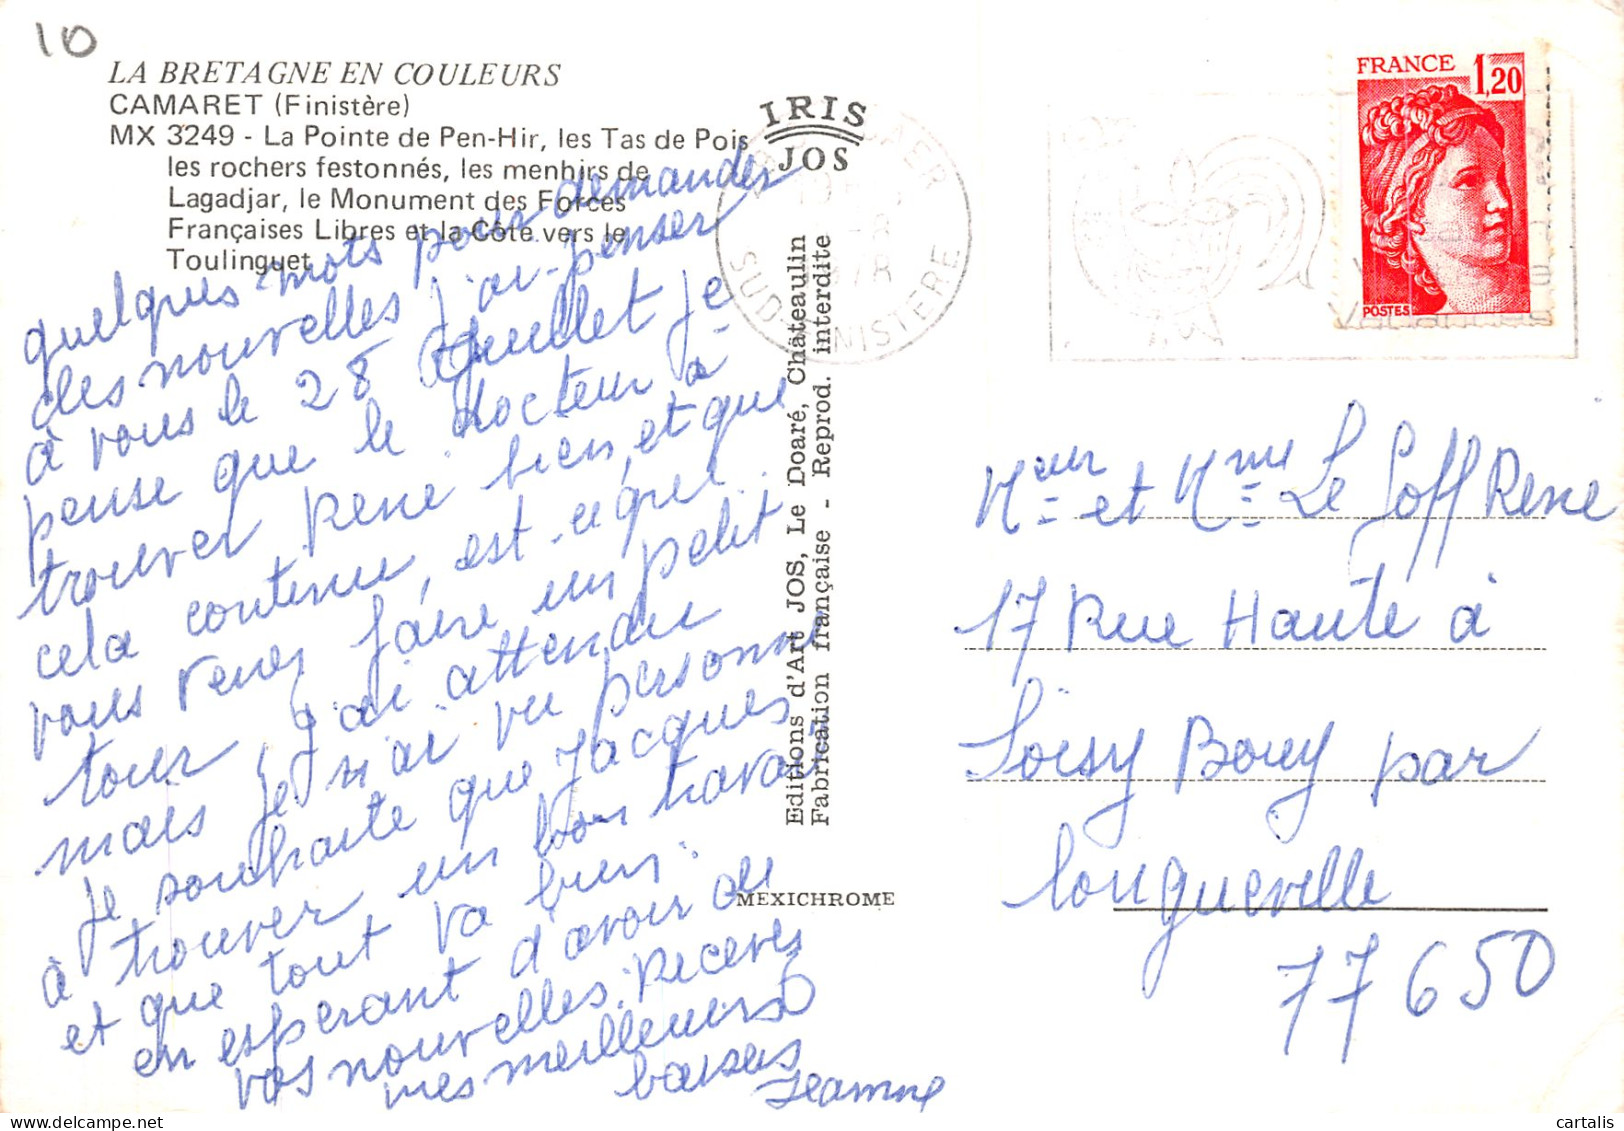 10
LA BRETAGNE EN COULEURS
CAMARET (Finistère)
MX 3249 - La Pointe de Pen-Hir, les Tas de Pois
les rochers festonnés, les menhirs de
Lagadjar, le Monument des Forces
Françaises Libres et la Côte vers le
Toulinguet
quelques mots pour demander
des nouvelles j'ai penser
à vous le 28 Juillet je
pense que le docteur à
trouver René bien, et que
cela continu, est-ce que
vous venez faire un petit
tour, j'ai attendu
mais je n'ai vu personne
je souhaite que Jacques
à trouver un bon travail
et que tout va bien.
en esperant d'avoir de
vos nouvelles. Recevés
mes meilleurs
baisers
Jeanne
IRIS
JOS
SUD-FINISTERE
Editions d'Art JOS, Le Doaré, Châteaulin
Fabrication française - Reprod. interdite
MEXICHROME
FRANCE 1,20
POSTES
Meur et Mme Le Goff Rene
17 Rue Haute à
Soisy Bouy par
Longueville
77650
cartalis
www.delcampe.net